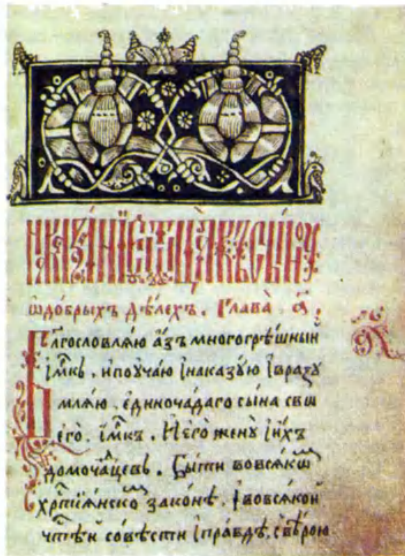 наказание ѿ отца къ сыну
ѿ добрыхъ дѣлехъ. Глава. а҃.
Благословляю азъ многогрѣшныи
імкъ. и поучаю інаказую івразꙋ
мляю. единочадаго сына сво
его. імкъ. И его женꙋ іихъ
домочадцевъ. Быти во всякомъ
хрстиянскомъ законѣ. Івовсякои
чистои совѣсти іправдѣ, свѣрою